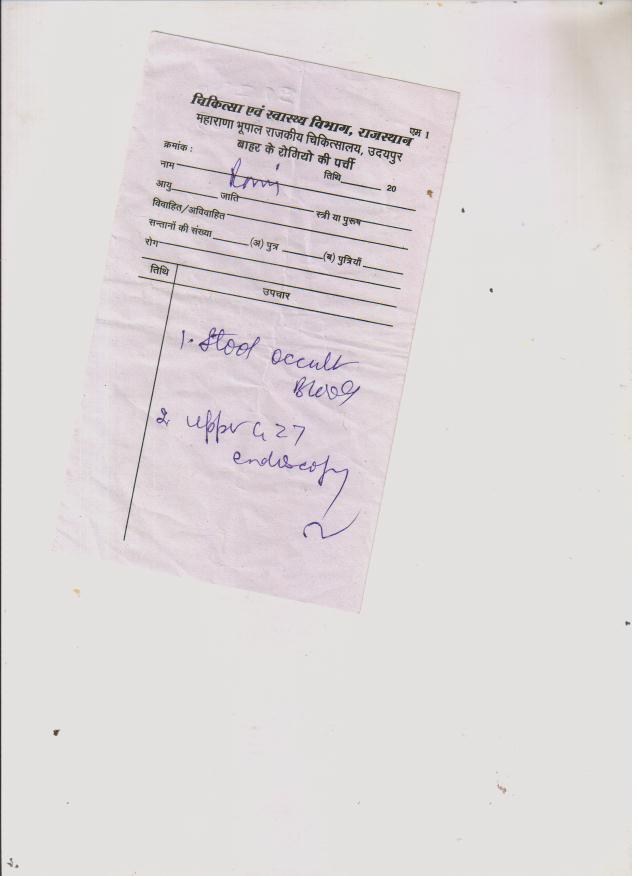 चिकित्सा एवं स्वास्थ्य विभाग, राजस्थान एम 1
महाराणा भूपाल राजकीय चिकित्सालय, उदयपुर
बाहर के रोगियो की पर्ची
क्रमांक :
तिथि 20
नाम
आयु जाति स्त्री या पुरूष
विवाहित/अविवाहित
सन्तानों की संख्या (अ) पुत्र (ब) पुत्रियाँ
रोग
तिथि उपचार
1. Stool occult
Blood
2 upper G I
endoscopy